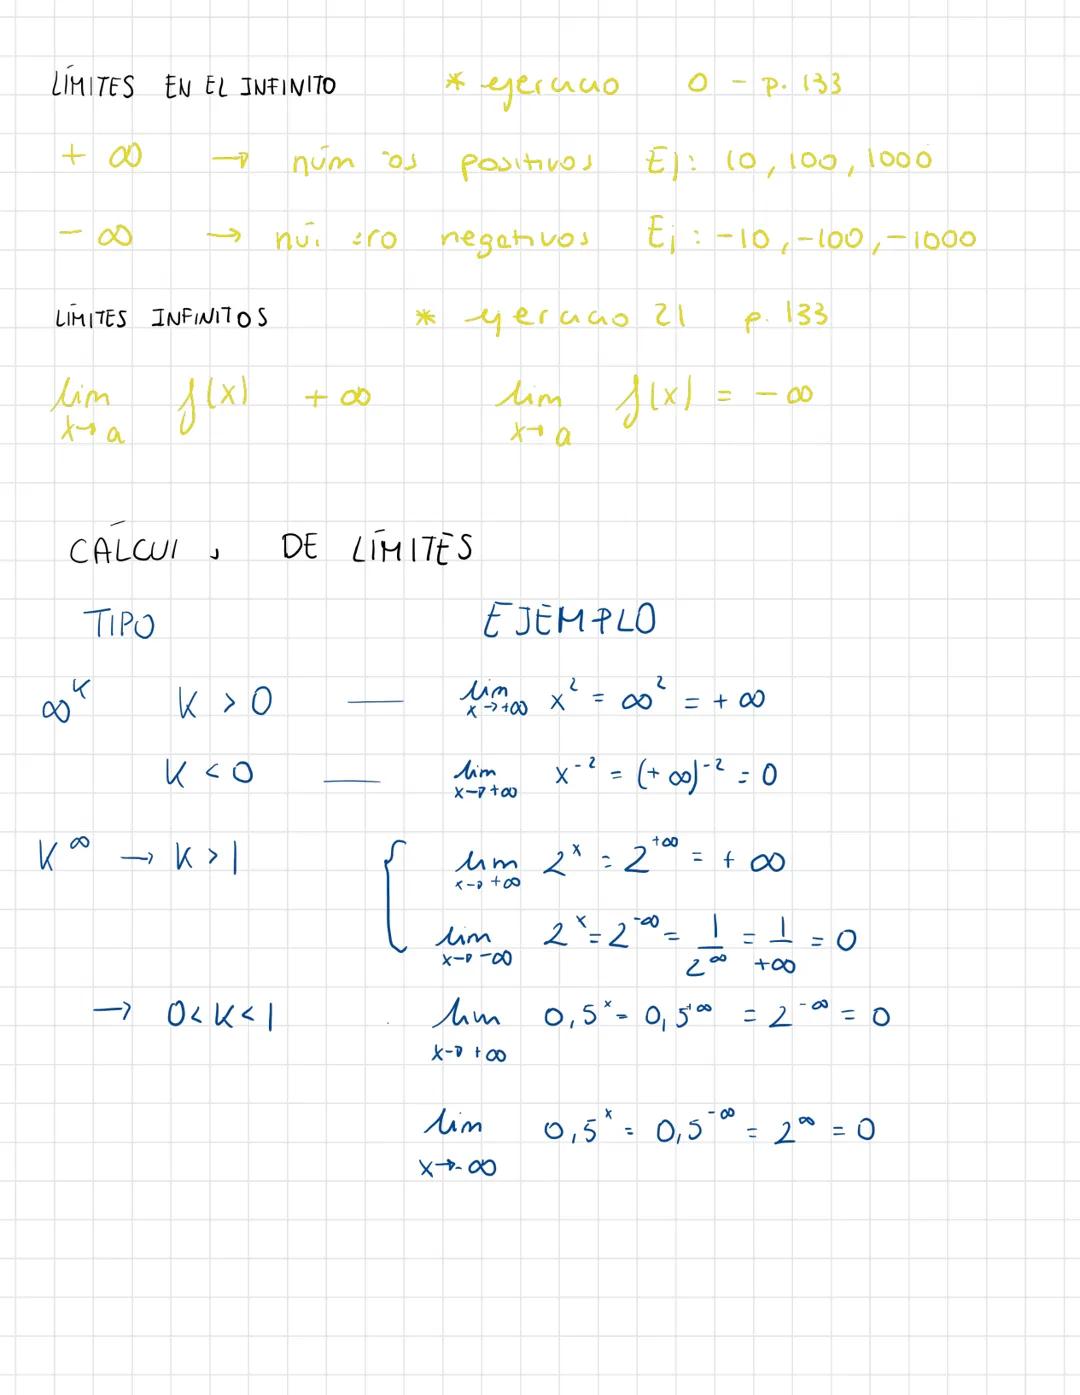 LÍMITES EN EL INFINITO * ejercicio 0 - p. 133
+ ∞ → núm os positivos Ej: 10, 100, 1000
- ∞ → ero negativos Ej: -10, -100, -1000
LÍMITES INFINITOS * ejercicio 21 p. 133
lim f(x) + ∞ lim f(x) = - ∞
x→a x→a
DE LÍMITES
TIPO EJEMPLO
∞^K K > 0 — lim x→+∞ x² = ∞² = + ∞
K < 0 — lim x→+∞ x⁻² = (+∞)⁻² = 0
K^∞ → K > 1 { lim x→+∞ 2^x = 2^+∞ = + ∞
lim x→-∞ 2^x = 2^-∞ = 1/2^∞ = 1/+∞ = 0
→ 0 < K < 1 lim x→+∞ 0,5^x = 0,5^+∞ = 2^-∞ = 0
lim x→-∞ 0,5^x = 0,5^-∞ = 2^∞ = 0